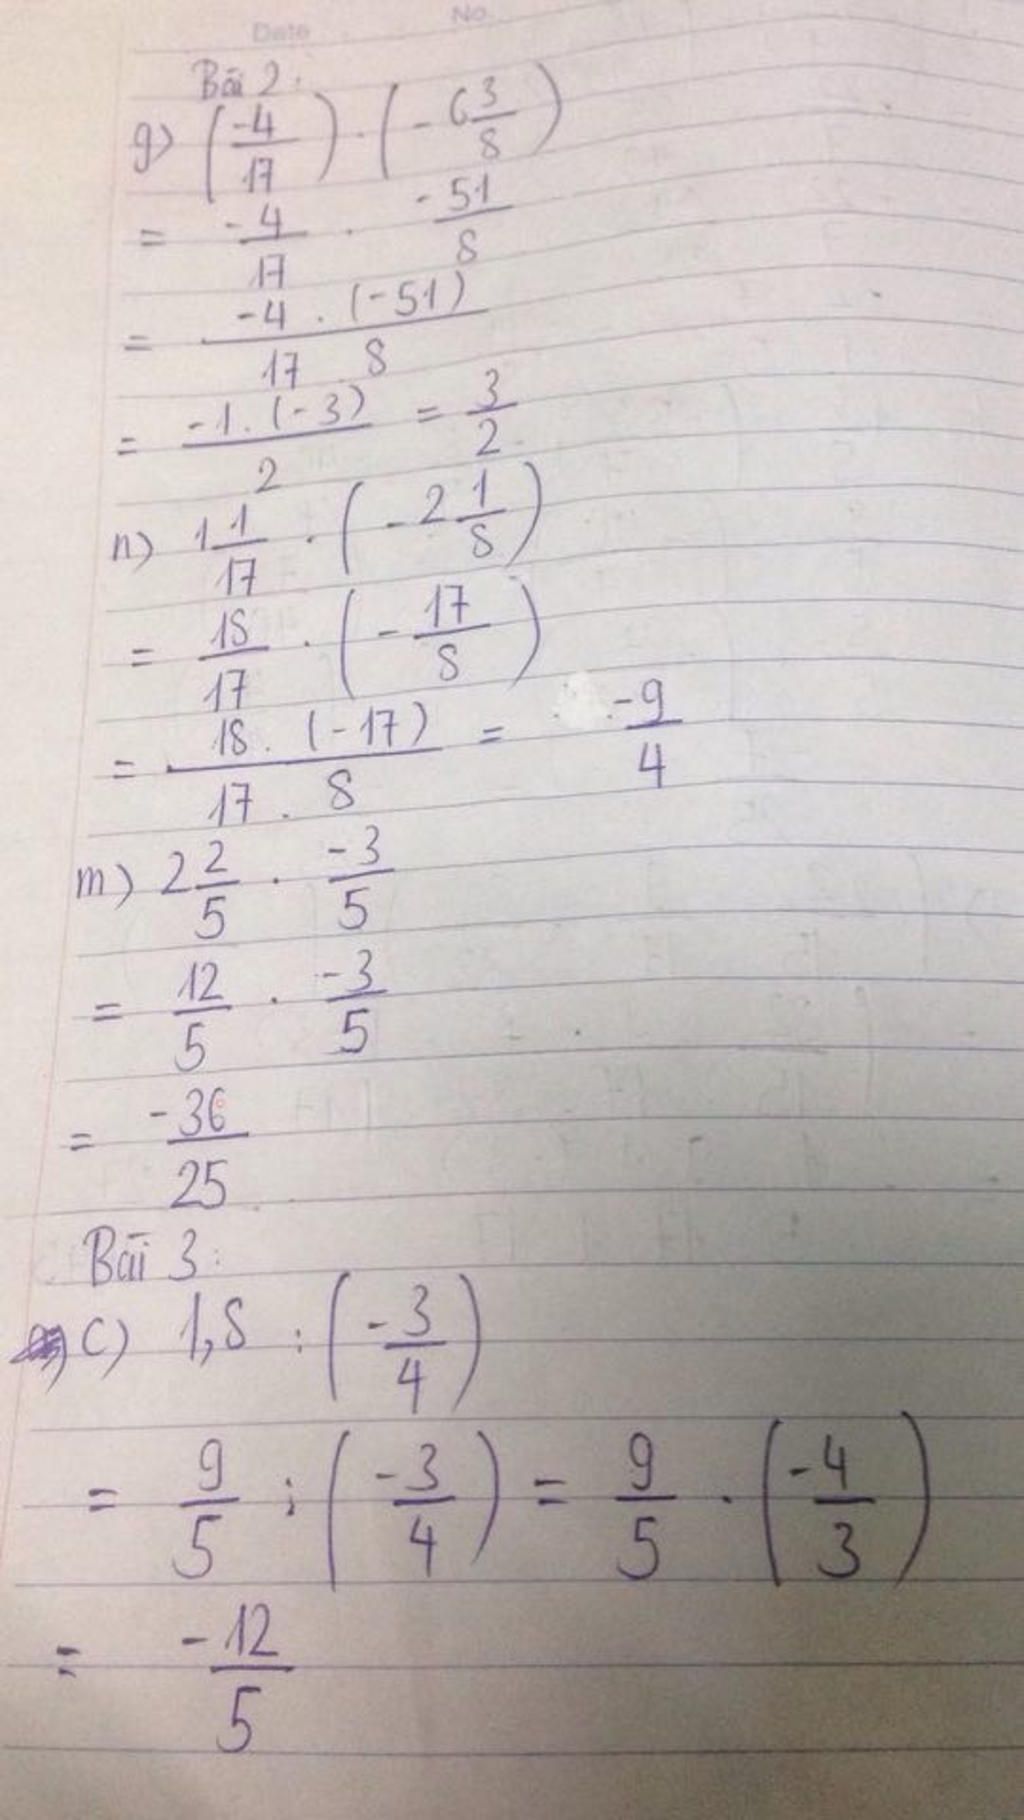 Date No.
Bài 2:
g) (-4/17) . (-6 3/8)
= -4/17 . -51/8
= -4 . (-51)/17 8
= -1 . (-3)/2 = 3/2
n) 1 1/17 . (-2 1/8)
= 18/17 . (-17/8)
= 18 . (-17)/17 . 8 = -9/4
m) 2 2/5 . -3/5
= 12/5 . -3/5
= -36/25
Bài 3:
c) 1,8 : (-3/4)
= 9/5 : (-3/4) = 9/5 . (-4/3)
= -12/5